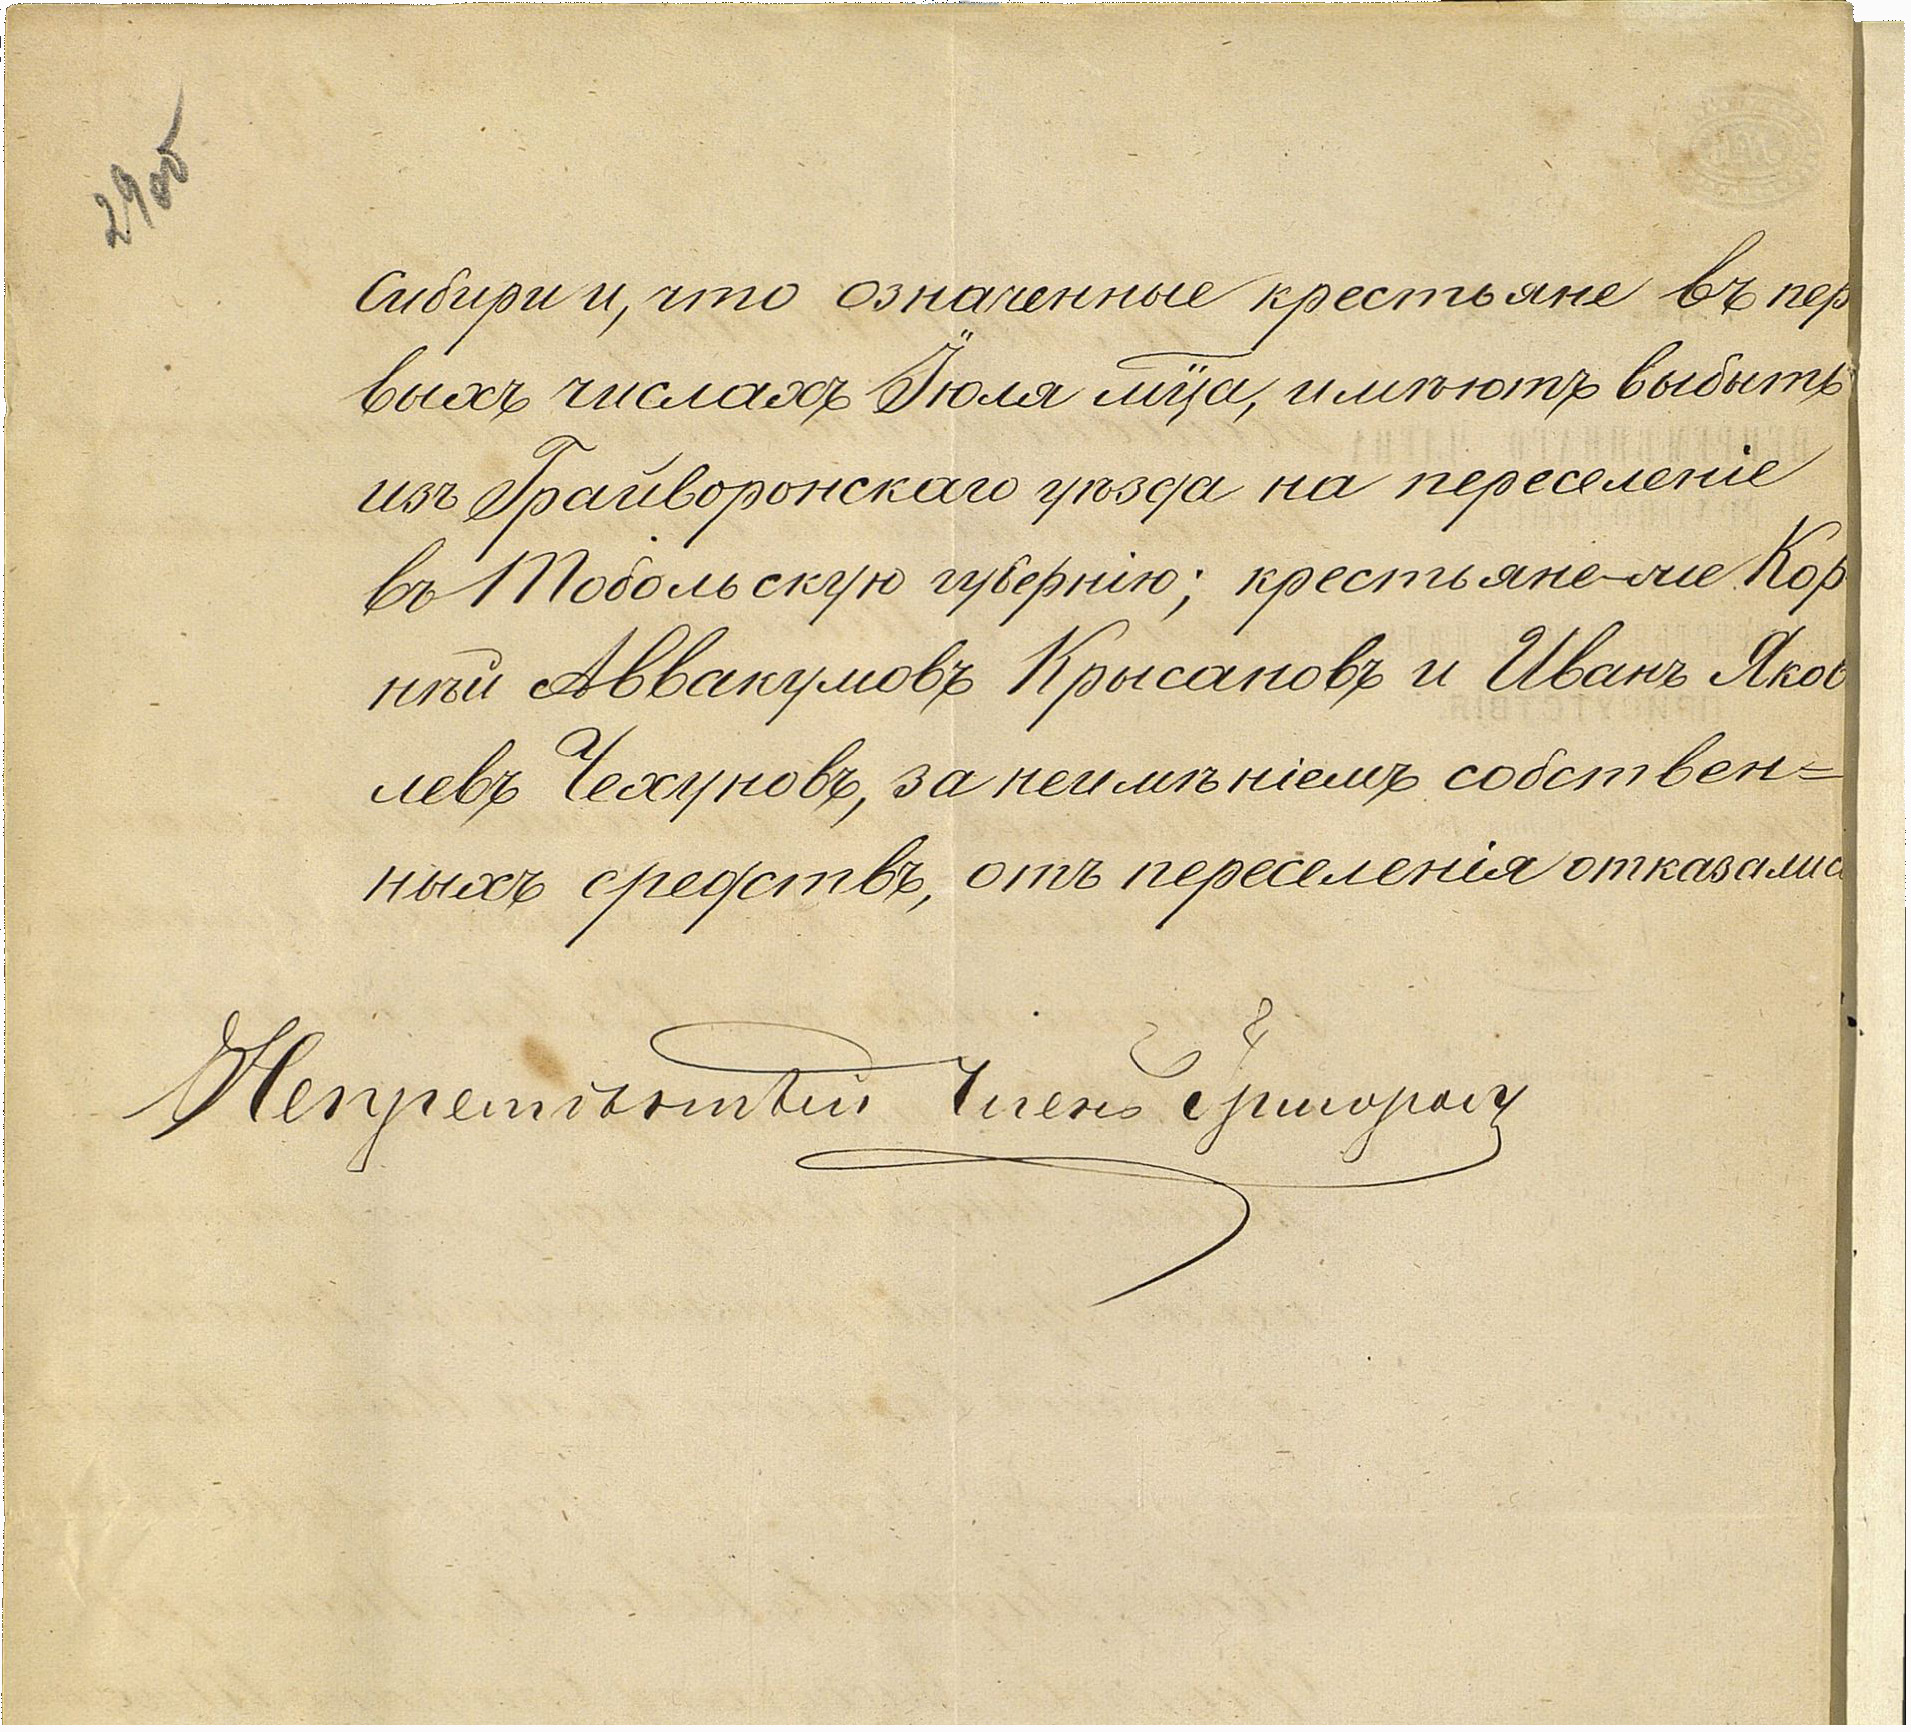 29об
Сибири и, что означенные крестьяне въ пер
выхъ числахъ Іюля мѣца, имѣютъ выбыть
изъ Грайворонскаго уѣзда на переселеніе
въ Тобольскую губернію; крестьяне-же Кор
нѣй Аввакумовъ Крысановъ и Иванъ Яков
левъ Чехуновъ, за неимѣніемъ собствен=
ныхъ средствъ, отъ переселенія отказались
Непремѣнный Членъ